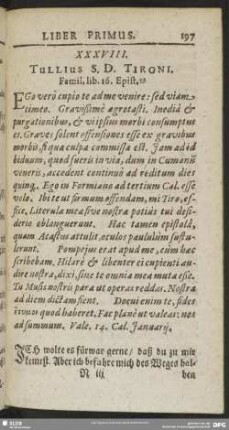 LIBER PRIMUS. 197
XXXVIII.
TULLIUS S. D. TIRONI.
Famil. lib. 16. Epist.
EGo verò cupio te ad me venire: sed viam
timeo. Gravissimè ægrotasti. Inediâ &
purgationibus, & vi ipsius morbi consumptus
es. Graves solent offensiones esse ex gravibus
morbis, si qua culpa commissa est. Jam ad id
biduum, quod fueris in via, dum in Cumanũ
veneris, accedent continuò ad reditum dies
quinq;. Ego in Formiano ad tertium Cal. esse
volo. Ibi te ut firmum offendam, mi Tiro, ef-
fice, Literulæ meæ sive nostræ potiùs tui desi-
derio oblanguerunt. Hac tamen epistolâ,
quam Acastus attulit, oculos paululùm sustu-
lerunt. Pompejus erat apud me, cùm hæc
scribebam, Hilarè & libenter ei cupienti au-
dire nostra, dixi, sine te omnia mea muta esse.
Tu Musis nostris para ut operas reddas. Nostra
ad diem dictam fient. Docui enim te, fides
ἔτυμον quod haberet. Fac planè ut valeas: nos
ad summum. Vale. 14. Cal. Januarij.
JCH wolte es fürwar gerne / daß du zu mir
kemest. Aber ich befahre mich des Weges hal-
N iij ben